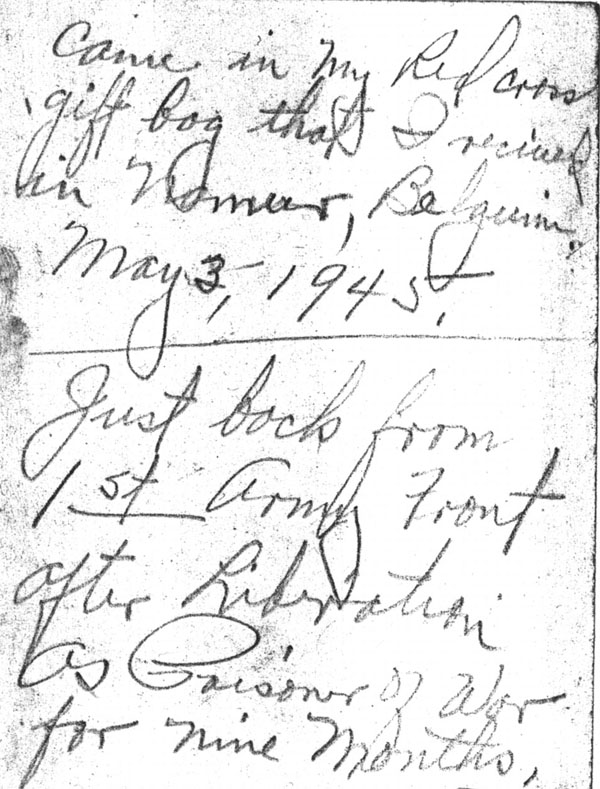 came in my Red cross
gift bag that I recieved
in Namur, Belguim,
May 3, 1945.
Just back from
1st Army Front
after Liberation
As Prisoner of War
for nine Months,